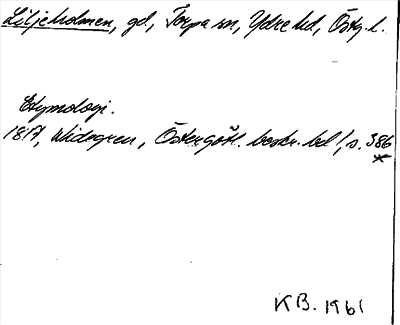 Liljeholmen, gd, Torpa sn, Ydre hd, Östg. l.
Etymologi.
1817, Widegren, Östergötl. beskr. bd 1, s. 386
K B. 1961